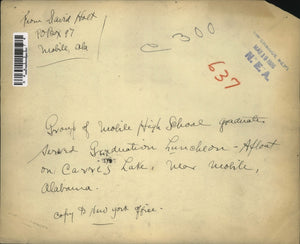 From David Holt
PO Box 97
Mobile, Ala
C 300
637
N.E.A.
Group of Mobile High School graduates
served Graduation Luncheon - Afloat
on Lake, Near Mobile,
Alabama.
copy to New York office.